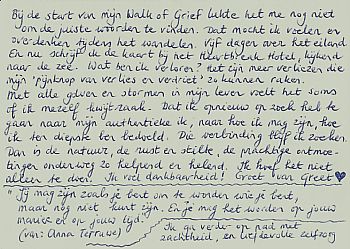 Bij de start van mijn Walk of Grief lukte het me nog niet
om de juiste woorden te vinden. Dat mocht ik voelen en
overdenken tijdens het wandelen. Vijf dagen over het eiland
En nu schrijf ik de kaart bij het Heartbreak Hotel, kijkend
naar de zee. Wat ben ik verloren? Het zijn meer verliezen die
mijn 'pijnknop van verlies en verdriet' zo kunnen raken.
Met alle golven en stormen in mijn leven voelt het soms
of ik mezelf kwijtraak. Dat ik opnieuw op zoek heb te
gaan naar mijn authentieke ik, naar hoe ik mag zijn, hoe
ik ten diepste ben bedoeld. Die verbinding blijf ik zoeken.
Dan is de natuur, de rust en stilte, de prachtige ontmoe-
tingen onderweg zo helpend en helend. Ik hoef het niet
alleen te doen. Ik voel dankbaarheid! Groet van Greet
"Jij mag zijn zoals je bent om te worden wie je bent,
maar nog niet kunt zijn. En je mag het worden op jouw
manier en op jouw tijd."
(van: Anna Terruwe)
Ik ga verder op pad met
zachtheid, en liefdevolle zelfzorg